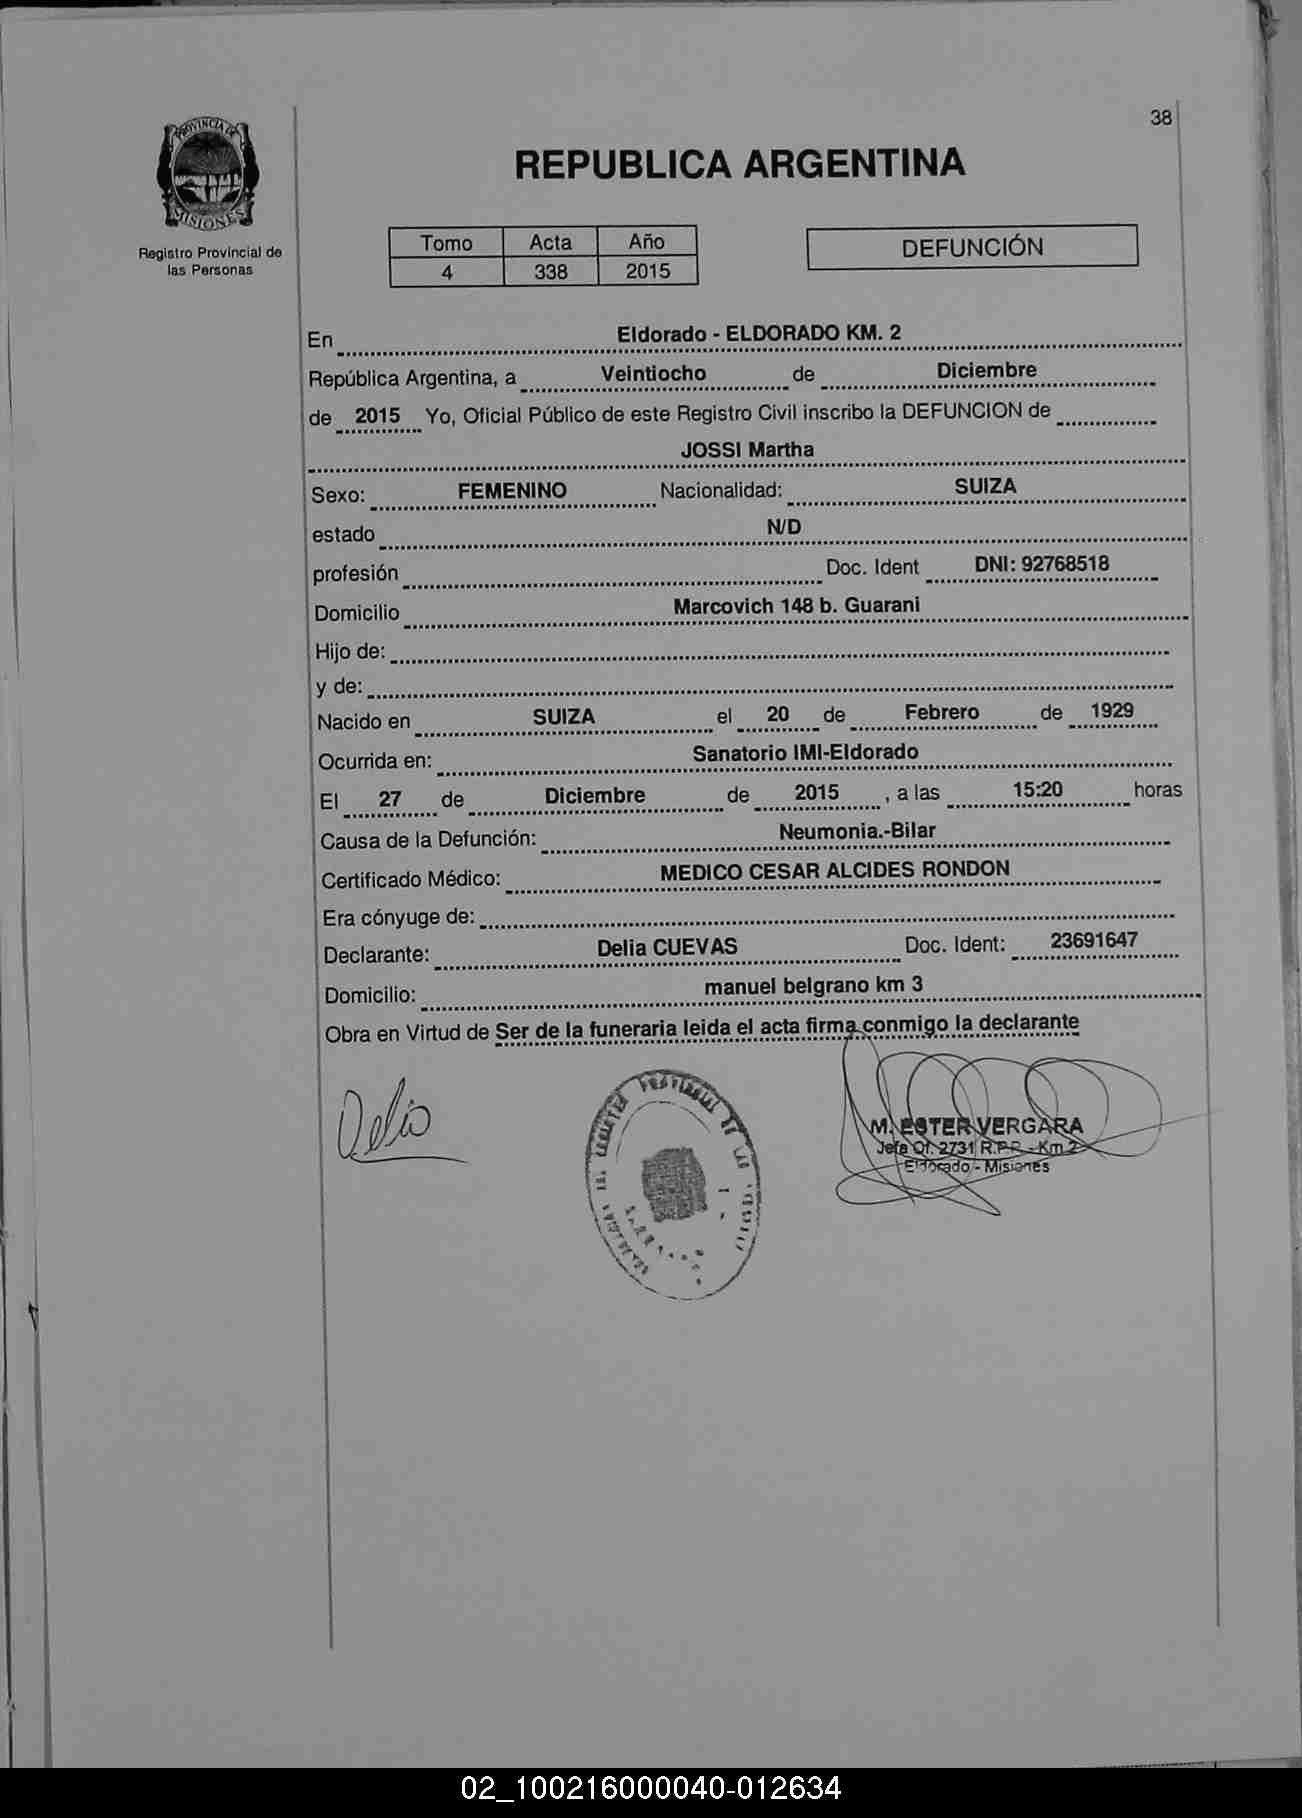 38
PROVINCIA DE
MISIONES
Registro Provincial de
las Personas
REPUBLICA ARGENTINA
Tomo Acta Año
4 338 2015
DEFUNCIÓN
En Eldorado - ELDORADO KM. 2
República Argentina, a Veintiocho de Diciembre
de 2015 Yo, Oficial Público de este Registro Civil inscribo la DEFUNCION de
JOSSI Martha
Sexo: FEMENINO Nacionalidad: SUIZA
estado N/D
profesión Doc. Ident DNI: 92768518
Domicilio Marcovich 148 b. Guarani
Hijo de:
y de:
Nacido en SUIZA el 20 de Febrero de 1929
Ocurrida en: Sanatorio IMI-Eldorado
El 27 de Diciembre de 2015 , a las 15:20 horas
Causa de la Defunción: Neumonia.-Bilar
Certificado Médico: MEDICO CESAR ALCIDES RONDON
Era cónyuge de:
Declarante: Delia CUEVAS Doc. Ident: 23691647
Domicilio: manuel belgrano km 3
Obra en Virtud de Ser de la funeraria leida el acta firma conmigo la declarante
Delia
PROVINCIAL DE LAS
M. ESTER VERGARA
Jefe Of. 2731 R.P.P. - Km 2
Eldorado - Misiones
02_100216000040-012634